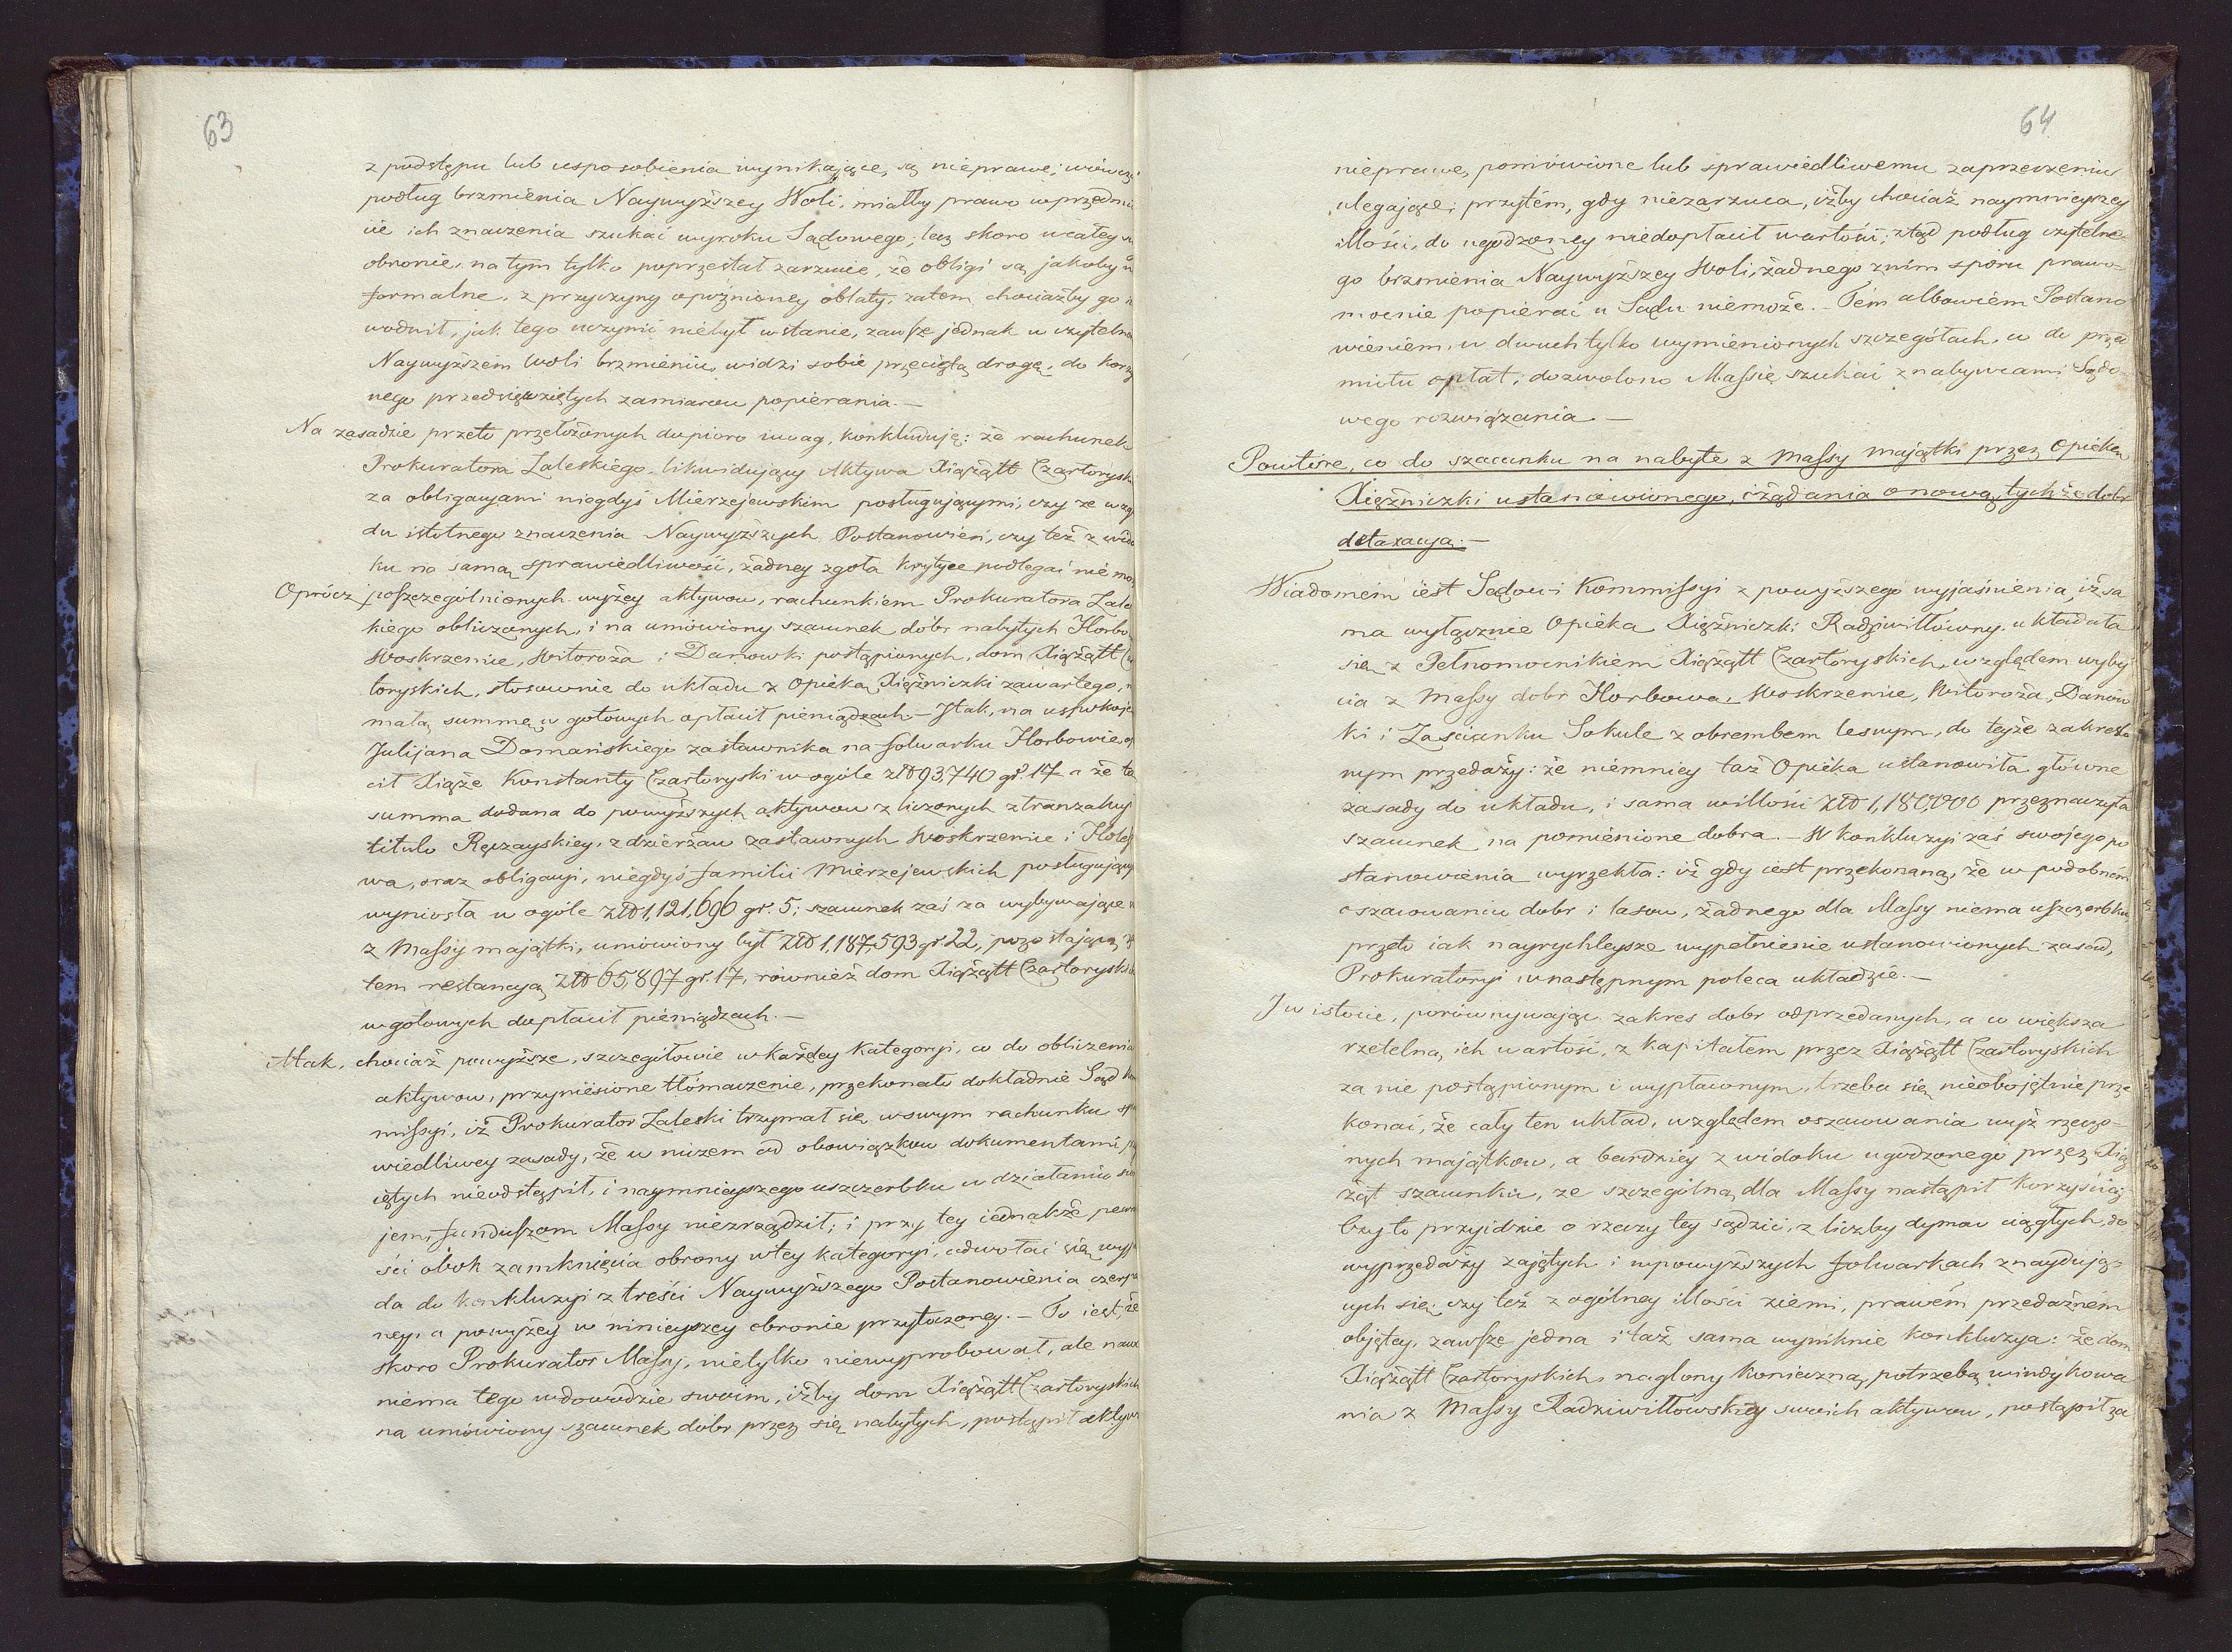 63
z podstępu lub usposobienia wynikające, są nieprawe; wówcz
podług brzmienia Naywyższey Woli, miałby prawo wprzedmi
cie ich znaczenia szukać wyroku Sądowego; lecz skoro wcałey
obronie, na tym tylko poprzestał zarzucie, że obligi są jakoby
formalne, z przyczyny opóźnioney oblaty, zatem chociażby go
wodnił, jak tego uczynić niebył wstanie, zawsze jednak w czytelne
Naywyższem Woli brzmieniu, widzi sobie przeciętą drogę, do korzy
nego przedsięwziętych zamiarow popierania.—
Na zasadzie przeto przełożonych dopiero uwag, konkluduję: że rachunek
Prokuratora Zaleskiego likwidujący Aktywa Xiążątt Czartorysk
za obligacyami niegdyś Mierzejewskim posługującymi, czy ze wzglę
du istotnego znaczenia Naywyższych Postanowień, czy też z wido
ku na samą sprawiedliwość, żadney zgoła krytyce podlegać niemo
Oprócz poszczególnionych wyżey aktywow, rachunkiem Prokuratora Zale
kiego obliczonych, i na umówiony szacunek dóbr nabytych Horbo
Woskrzenice, Witoroża i Danowki postąpionych, dom Xiążątt
toryskich, stosownie do układu z Opieką Xiężniczki zawartego,
małą summę w gotowych opłacił pieniądzach.— Jtak, na uspokoje
Julijana Domańskiego zastawnika na folwarku Horbowie o
cił Xiąże Konstanty Czartoryski w ogóle złł 93,740 gr 17 a że ta
summa dodana do powyższych aktywow zliczonych ztranzakcyi
titulo Ręczayskiey, z dzierżaw zastawnych Woskrzenice i Holes
wa, oraz obligacyi, niegdyś familii Mierzejewskich posługujący
wyniosła w ogóle złł 1,121,696 gr. 5; szacunek zaś za wybywające
z Massy majątki, umówiony był złł 1,187,593 gr 22, pozostającą
tem restancyą złł 65,897 gr. 17, również dom Xiążątt Czartorysk
wgotowych dopłacił pieniądzach.—
Atak, chociaż powyższe, szczegółowie wkażdey kategoryi, co do obliczenia
aktywow, przyniesione tłómaczenie, przekonało dokładnie Sąd
missyi, iż Prokurator Zaleski trzymał się wswym rachunku
wiedliwey zasady, że w niczem od obowiązkow dokumentami
iętych nieodstąpił, i naymnieyszego uszczerbku w działaniu swo
jem, funduszom Massy niezrządził; i przy tey jednakże pewno
ści obok zamknięcia obrony wtey kategoryi, odwołać się wypa
da do konkluzyi z treści Naywyższego Postanowienia czerp
ney, a powyżey w ninieyszey obronie przytoczoney.— To iest, że
skoro Prokurator Massy, nietylko niewyprobował, ale nawe
niema tego wdowodzie swoim, iżby dom Xiążątt Czartoryskich
na umówiony szacunek dobr przez się nabytych, postąpił aktyw
64
nieprawe, pomówione lub sprawiedliwemu zaprzeczeniu
ulegające; przytém, gdy niezarzuca, iżby chociaż naymnieyszey
illości, do ugodzoney niedopłacił wartości; ztąd podług czytelne
go brzmienia Naywyższey Woli, żadnego znim sporu prawo-
mocnie popierać u Sądu niemoże.— Tém albowiem Postano
wieniem, w dwuch tylko wymienionych szczegółach, co do przed
miotu opłat, dozwolono Massie szukać z nabywcami Sądo-
wego rozwiązania.—
Powtóre, co do szacunku na nabyte z Massy majątki przez Opiekę
Xiężniczki ustanowionego, i żądania o nową tychże dobr
detaxacyą.—
Wiadomem iest Sądowi Kommissyi z powyższego wyjaśnienia, iż sa
ma wyłącznie Opieka Xiężniczki Radziwiłłówny, układała
się z Pełnomocnikiem Xiążątt Czartoryskich, względem wyby
cia z Massy dobr Horbowa, Woskrzenice, Witoroża, Danow
ki i Zascianku Sokule z obrembem lesnym, do teyże zakreslo
nym przedaży: że niemniey taż Opieka ustanowiła główne
zasady do układu, i sama willości złł 1,180,000 przeznaczyła
szacunek na pomienione dobra.— W konkluzyi zaś swojego po
stanowienia wyrzekła: iż gdy iest przekonaną, że w podobném
oszacowaniu dobr i lasow, żadnego dla Massy niema uszczerbku,
przeto iak nayrychleysze wypełnienie ustanowionych zasad,
Prokuratoryi wnastępnym poleca układzie.—
J w istocie, porównywając zakres dobr odprzedanych, a co większa
rzetelną ich wartość, z kapitałem przez Xiążątt Czartoryskich
za nie postąpionym i wypłaconym, trzeba się nieobojętnie prze
konać, że cały ten układ, względem oszacowania wyż rzeczo-
nych majątkow, a bardziey z widoku ugodzonego przez Xią
żąt szacunku, ze szczególną dla Massy nastąpił korzyścią;
bzy to przyidzie o rzeczy tey sądzić, z liczby dymow ciągłych, do
wyprzedaży zajętych i wpowyższych folwarkach znaydują-
cych się; czy też z ogólney illości ziemi, prawém przedażném
objętey, zawsze jedna i taż sama wyniknie konkluzya: że dom
Xiążątt Czartoryskich, naglony konieczną potrzebą windykowa
nia z Massy Radziwiłłowskiey swoich aktywow, postąpił za